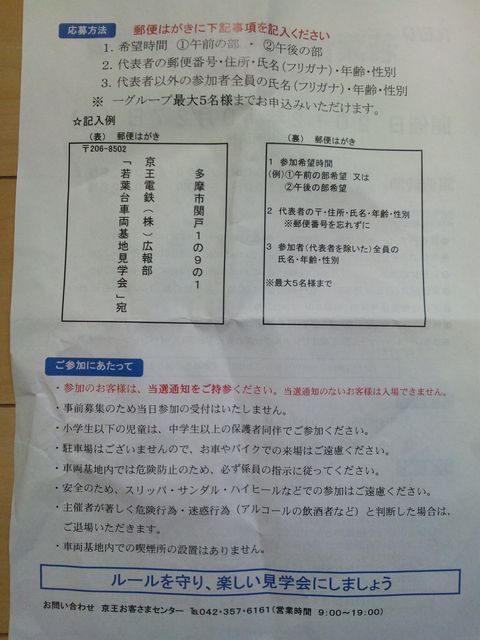 応募方法
郵便はがきに下記事項を記入ください
1. 希望時間 ①午前の部 ・ ②午後の部
2. 代表者の郵便番号・住所・氏名(フリガナ)・年齢・性別
3. 代表者以外の参加者全員の氏名(フリガナ)・年齢・性別
※ 一グループ最大5名様までお申込みいただけます。
☆記入例
(表) 郵便はがき
〒206-8502
多摩市関戸1の9の1
京王電鉄(株)広報部
「若葉台車両基地見学会」宛
(裏) 郵便はがき
1 参加希望時間
(例)①午前の部希望 又は
②午後の部希望
2 代表者の〒・住所・氏名・年齢・性別
※郵便番号を忘れずに
3 参加者(代表者を除いた)全員の
氏名・年齢・性別
※最大5名様まで
ご参加にあたって
・参加のお客様は、当選通知をご持参ください。当選通知のないお客様は入場できません。
・事前募集のため当日参加の受付はいたしません。
・小学生以下の児童は、中学生以上の保護者同伴でご参加ください。
・駐車場はございませんので、お車やバイクでの来場はご遠慮ください。
・車両基地内では危険防止のため、必ず係員の指示に従ってください。
・安全のため、スリッパ・サンダル・ハイヒールなどでの参加はご遠慮ください。
・主催者が著しく危険行為・迷惑行為(アルコールの飲酒者など)と判断した場合は、
ご退場いただきます。
・車両基地内での喫煙所の設置はありません。
ルールを守り、楽しい見学会にしましょう
お問い合わせ 京王お客さまセンター TEL042-357-6161(営業時間 9:00~19:00)